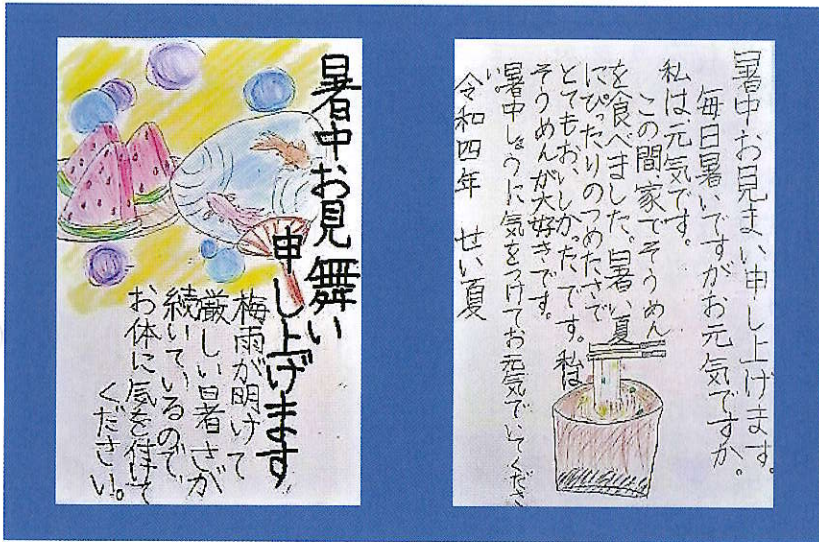 暑中お見舞い
申し上げます
梅雨が明けて
厳しい暑さが
続いているので
お体に気を付けて
ください。
暑中お見まい申し上げます。
毎日暑いですがお元気ですか。
私は元気です。
この間家でそうめん
を食べました。暑い夏
にぴったりのつめたさで
とてもおいしかったです。私は
そうめんが大好きです。
暑中しょうに気をつけてお元気でいてくださ
い。
令和四年 せい夏